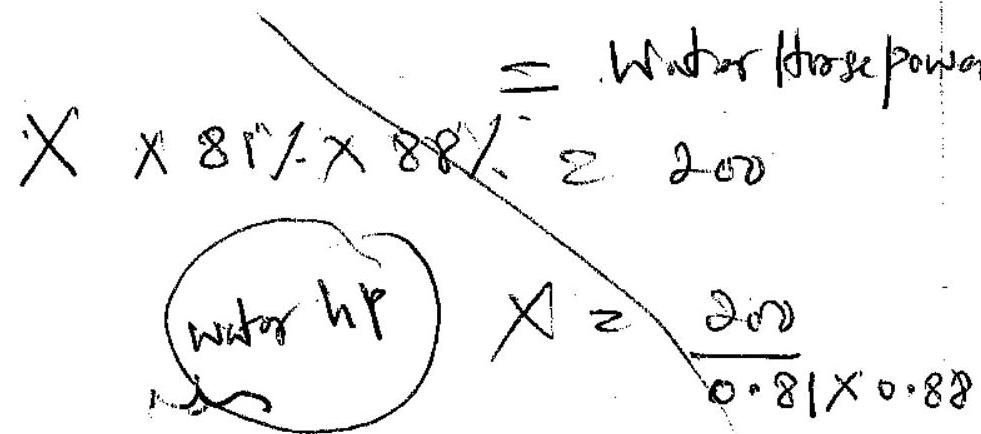 = Water Horse power
X x 81% x 88% = 200
water hp
X = 200
0.81 x 0.88